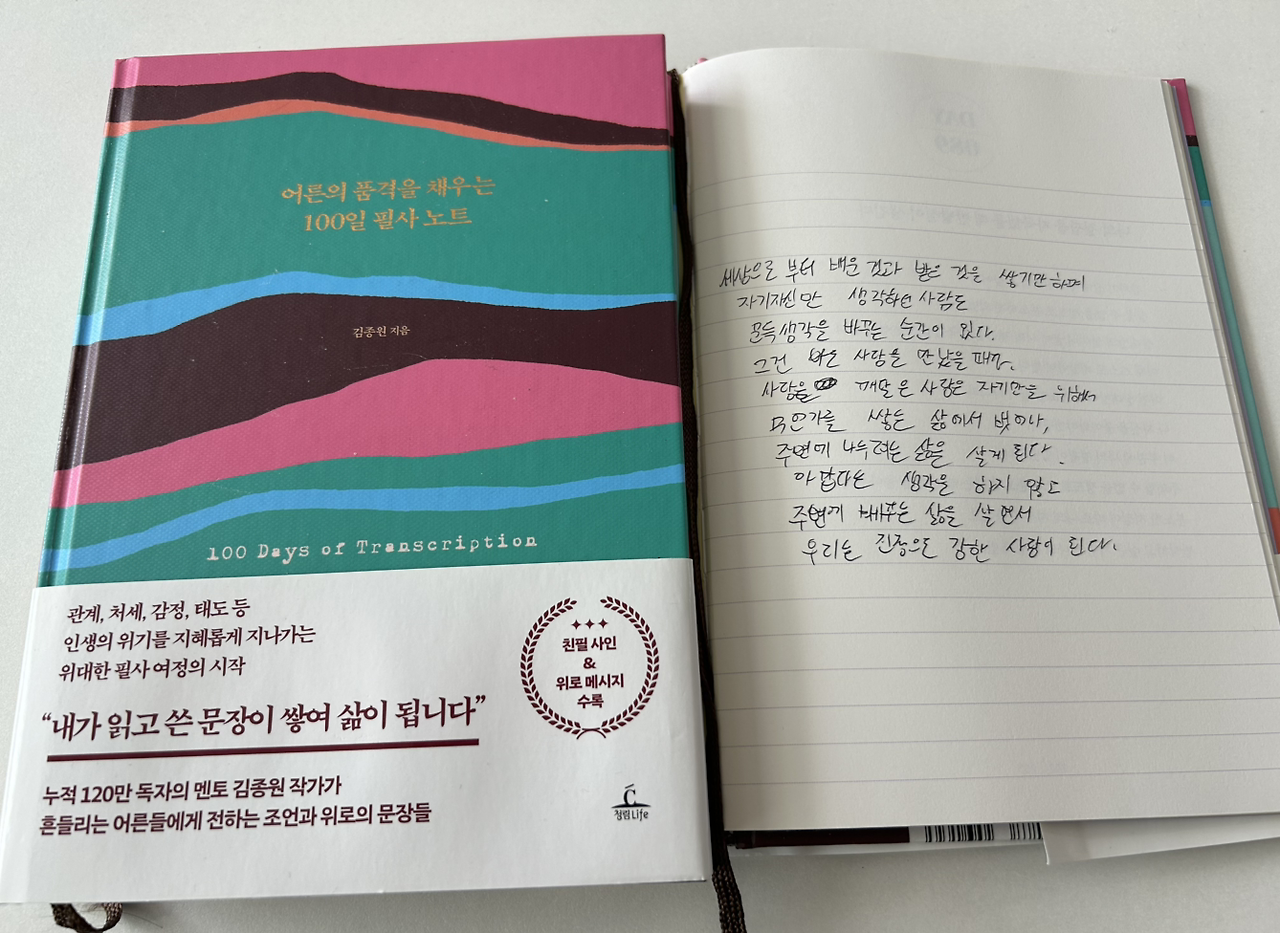 어른의 품격을 채우는
100일 필사 노트
김종원 지음
100 Days of Transcription
관계, 처세, 감정, 태도 등
인생의 위기를 지혜롭게 지나가는
위대한 필사 여정의 시작
“내가 읽고 쓴 문장이 쌓여 삶이 됩니다”
누적 120만 독자의 멘토 김종원 작가가
흔들리는 어른들에게 전하는 조언과 위로의 문장들
친필 사인
&
위로 메시지
수록
청림Life
DAY
089
세상으로 부터 배운 것과 받은 것을 쌓기만 하며
자기자신만 생각하던 사람도
문득 생각을 바꾸는 순간이 있다.
그건 사람을 만났을 때
사람을 깨달은 사람은 자기만을 위해서
무언가를 쌓는 삶에서 벗어나,
주변에 나누려는 삶을 살게 된다.
아깝다는 생각을 하지 않고
주변에 삶을 살면서
우리는 진정으로 강한 사람이 된다.